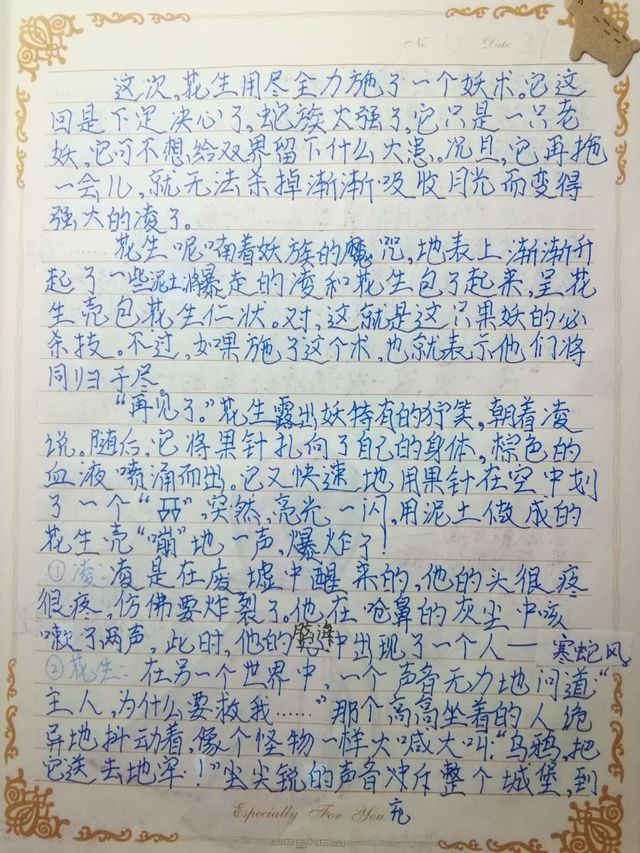 No 12 Date 27
这次,花生用尽全力施了一个妖术。它这
回是下定决心了,蛇族太强了,它只是一只老
妖,它可不想给双界留下什么大患。况且,它再拖
一会儿,就无法杀掉渐渐吸收月光而变得
强大的凌了。
花生呢喃着妖族的魔咒,地表上渐渐升
起了一些泥土将暴走的凌和花生包了起来,呈花
生壳包花生仁状。对,这就是这只果妖的必
杀技。不过,如果施了这个术,也就表示他们将
同归于尽。
“再见了。”花生露出妖特有的狞笑,朝着凌
说。随后,它将果针扎向了自己的身体,棕色的
血液喷涌而出。它又快速地用果针在空中划
了一个“ ”,突然,亮光一闪,用泥土做成的
花生壳“嘣”地一声,爆炸了!
①凌:凌是在废墟中醒来的,他的头很疼
很疼,仿佛要炸裂了。他在呛鼻的灰尘中咳
嗽了两声,此时,他的脑海中出现了一个人——寒蛇风。
②花生:在另一个世界中,一个声音无力地问道“
主人,为什么要救我……”那个高高坐着的人诡
异地抖动着,像个怪物一样大喊大叫:“乌鸦,把
它送去地牢!”尖尖锐的声音冲斥整个城堡,到
充
Especially For You